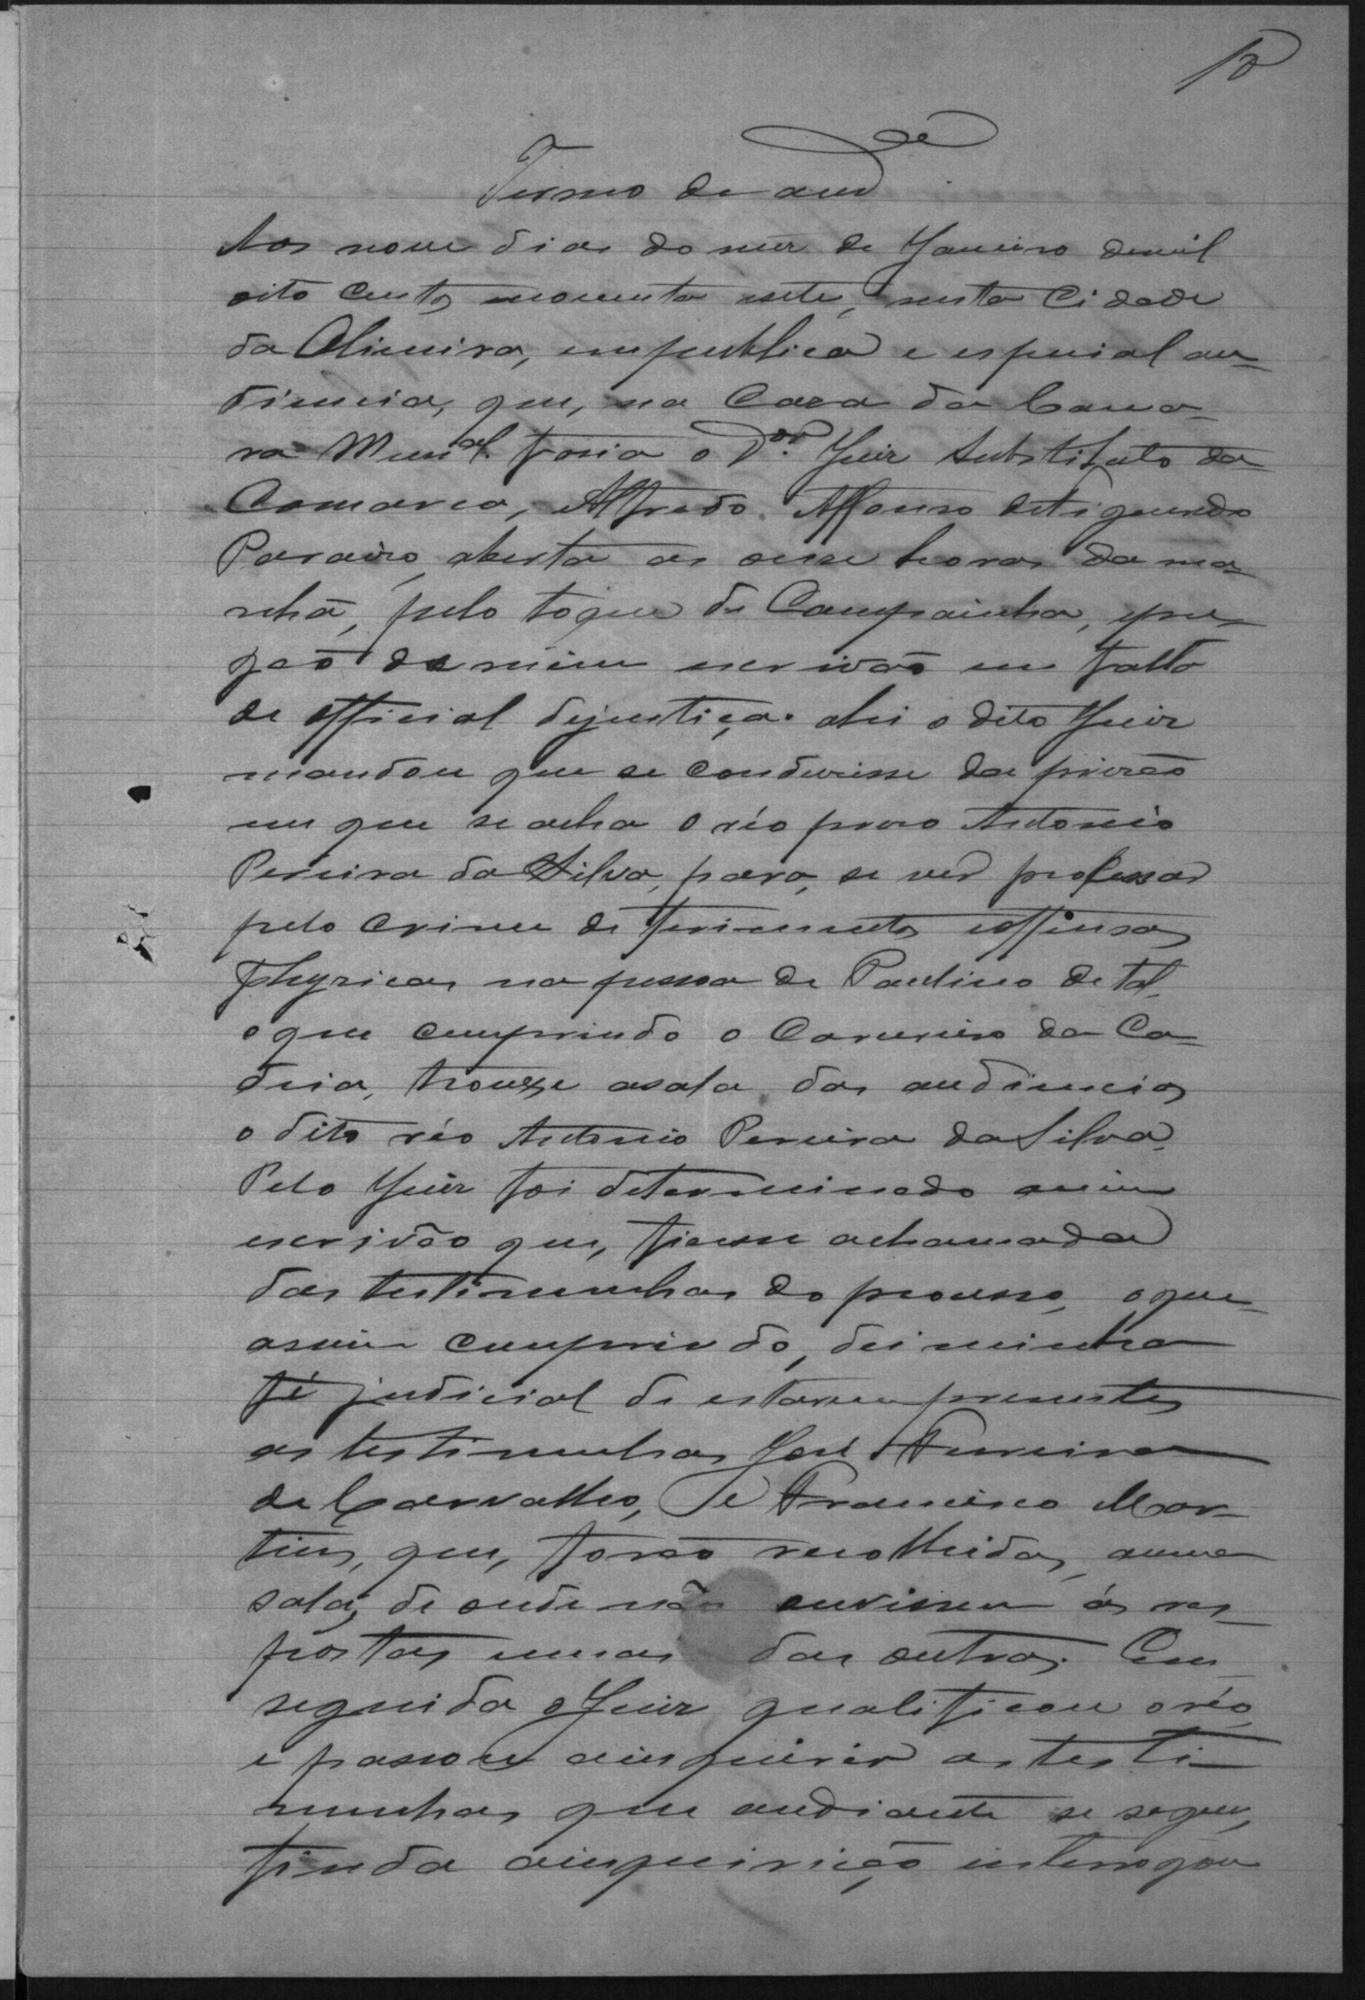 10
Termo de aud.cia
Aos nove dias do mez de Janeiro demil
oito centos noventa esete, nesta Cidade
da Limeira, empublica e especial au-
diencia, que, na Casa da Cama-
ra Munal. fasia o Dor. Juiz Substituto da
Comarca, Alfredo Affonso de Figueredo
aberta as onse horas da ma-
nhã, pelo toque de Campainha, epre-
gão de mim escrivão em falta
de official dejustiça. ahi o dito Juiz
mandou que se condusisse da prisão
em que se acha o réo preso Antonio
Pereira da Silva, para, se ver processar
pelo crime de ferimentos eoffensas
physicas na pessoa de Paulino de tal,
oque cumprindo o Carcereiro da Ca-
deia, trouxe asala das audiencias
o dito réo Antonio Pereira da Silva.
Pelo Juiz foi determinado amim
escrivão que, fisesse achamada
das testimunhas do processo, oque
assim cumprindo, dei minha
fé judicial de estarem presentes
as testimunhas José Ferreira
de Carvalho, e Francisco Mar-
tins, que, forão recolhidas, auma
sala, de onde não ouvissem ás res-
postas umas das outras. Em
seguida oJuiz qualificou oréo,
e passou ainquirir as testi-
munhas que audiante se segue,
finda ainquirição interrogou